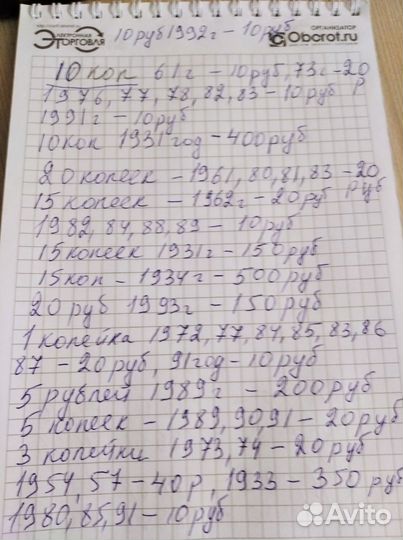 ЭЛЕКТРОННАЯ
ЭТОРГОВЛЯ
ОРГАНИЗАТОР
Obcrot.ru
10 руб 1992 г - 10 руб
10 коп 61 г - 10 руб, 73 г - 20 р
1976, 77, 78, 82, 83 - 10 руб
1991 г - 10 руб
10 коп 1931 год - 400 руб
20 копеек - 1961, 80, 81, 83 - 20 руб
15 копеек - 1962 г - 20 руб
1982, 84, 88, 89 - 10 руб
15 копеек 1931 г - 150 руб
15 коп - 1934 г - 500 руб
20 руб 1993 г - 150 руб
1 копейка 1972, 77, 84, 85, 83, 86
87 - 20 руб, 91 год - 10 руб
5 рублей 1989 г - 200 руб
5 копеек - 1989, 90, 91 - 20 руб
3 копейки 1973, 74 - 20 руб
1954, 57 - 40 р, 1933 - 350 руб
1980, 85, 91 - 10 руб
Avito